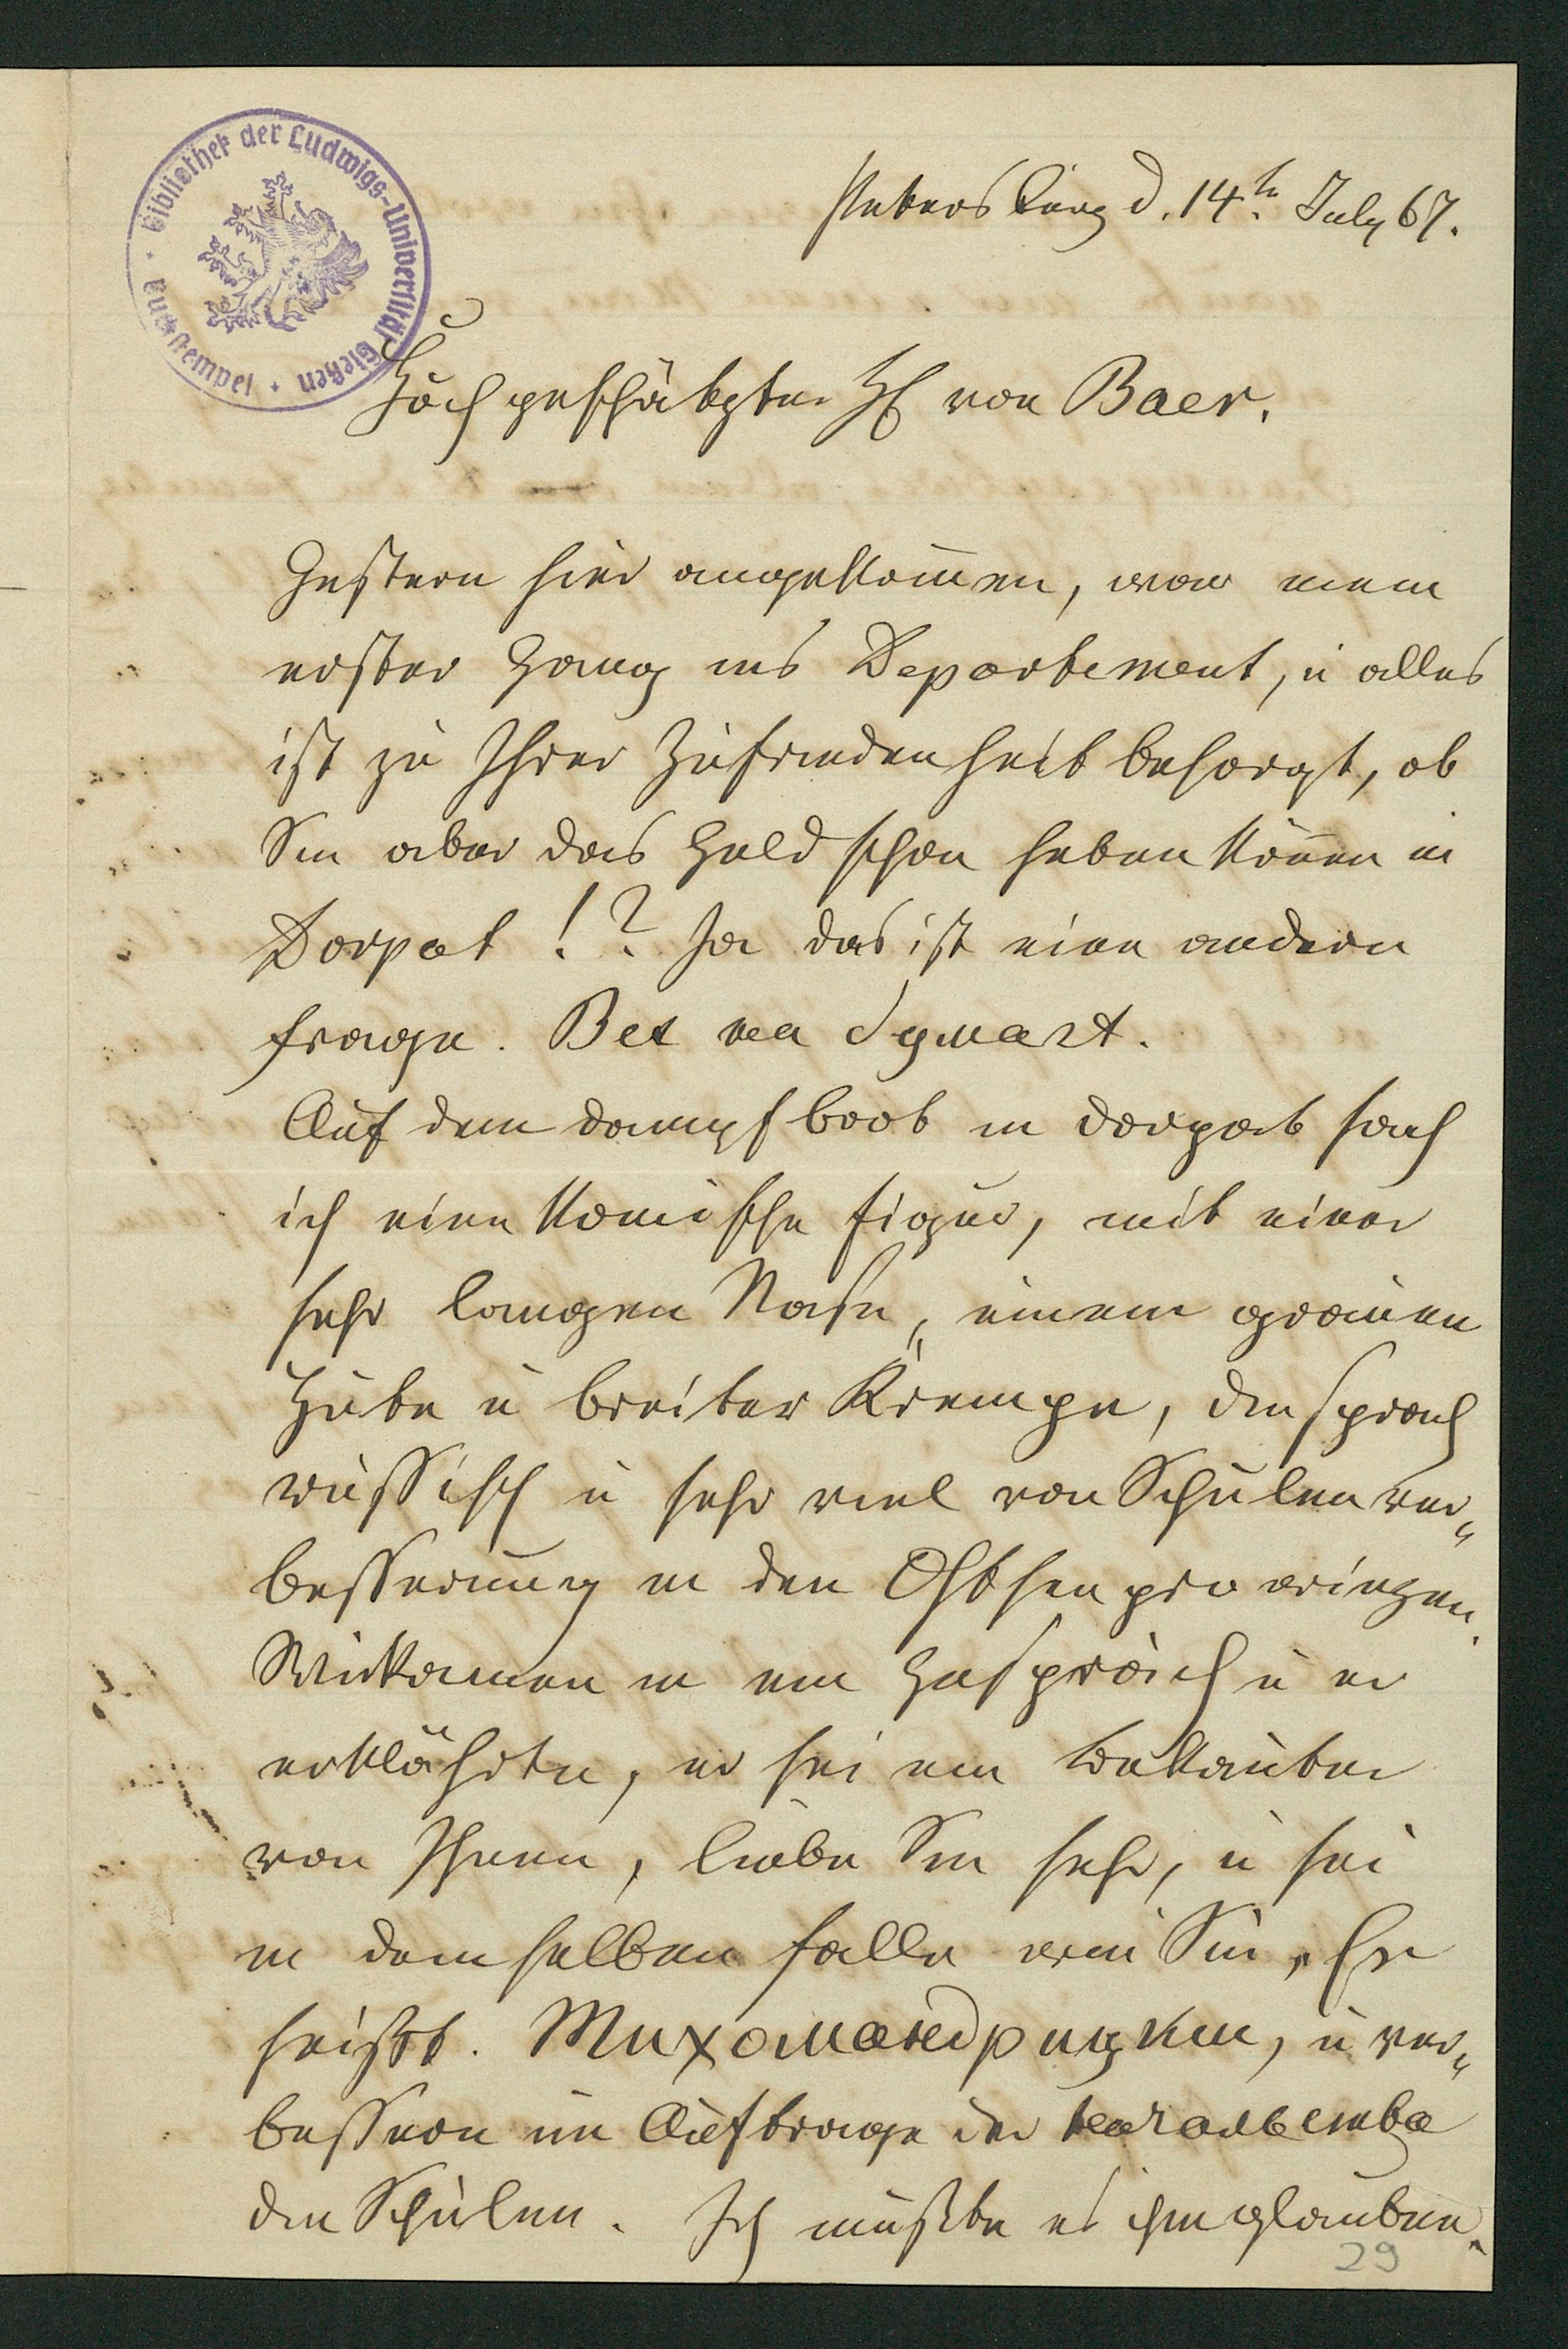 Bibliothek der Ludwigs-Universität Gießen · Tuchstempel ·
Petersburg d. 14t. July 67.
Hochgeschätzter H von Baer.
Gestern hier angekommen, war mein
erster Gang ins Departement, u alles
ist zu Ihrer Zufriedenheit besorgt, ob
Sie aber das Geld schon haben können in
Dorpat !? Ja das ist eine andere
Frage. Вет на Думает.
Auf dem Dampfboot in Dorpat sah
ich eine komische Figur, mit einer
sehr langen Nase, einem grauen
Hute u breiter Krempe, die sprach
russisch u sehr viel von Schulenver„
besserung in den Ostseeprovinzen.
Wir kamen in ein Gespräch u er
erklährte, er sei ein bekannter
von Ihnen, liebe Sie sehr, u sei
in demselben Falle wie Sie, Er
heißt. Михомандрицкии, u ver„
bessere im Auftrage der началъства
die Schulen. Ich mußte es ihm glauben.
29